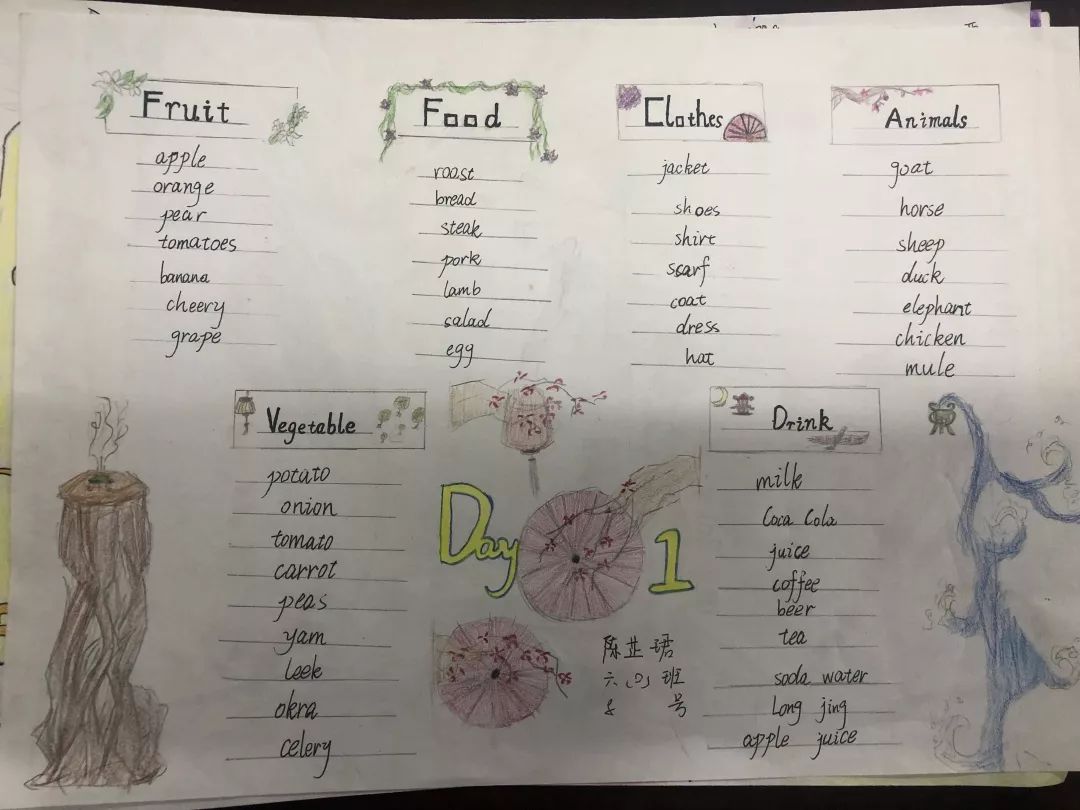 Fruit
apple
orange
pear
tomatoes
banana
cheery
grape
Food
roast
bread
steak
pork
lamb
salad
egg
Clothes
jacket
shoes
shirt
scarf
coat
dress
hat
Animals
goat
horse
sheep
duck
elephant
chicken
mule
Vegetable
potato
onion
tomato
carrot
peas
yam
leek
okra
celery
Day 1
陈芷珺
六(4)班
8 号
Drink
milk
Coca Cola
juice
coffee
beer
tea
soda water
Long jing
apple juice